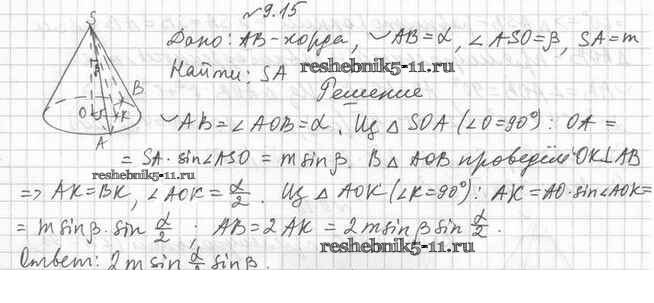 №9.15
Дано: AB-хорда, ◡AB=α, ∠ASO=β, SA=m
Найти: SA
reshebnik5-11.ru
Решение
S
B
O
K
A
◡AB=∠AOB=α. Из △SOA (∠O=90°): OA=
reshebnik5-11.ru
=SA·sin∠ASO=m sinβ. В △AOB проведём OK⊥AB
=> AK=BK, ∠AOK=α/2. Из △AOK (∠K=90°): AK=AO·sin∠AOK=
=m sinβ·sin α/2; AB=2AK=2m sinβ sin α/2.
reshebnik5-11.ru
Ответ: 2m sin α/2 sinβ.